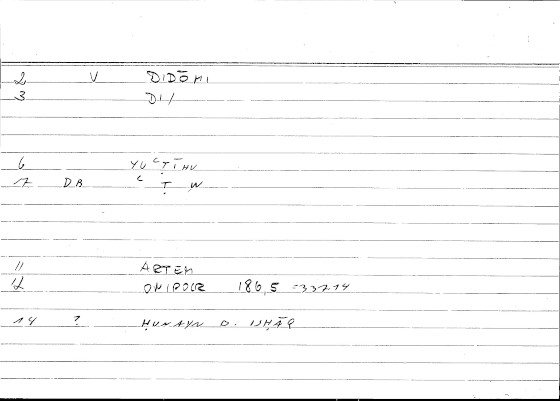 2 V DIDŌMI
3 DI/
6 YUʿṬĪHU
7 DB ʿ Ṭ W
11 ARTEM
12 OMIPOUR 186,5 =33214
14 ? ḤUNAYN B. ISḤĀQ